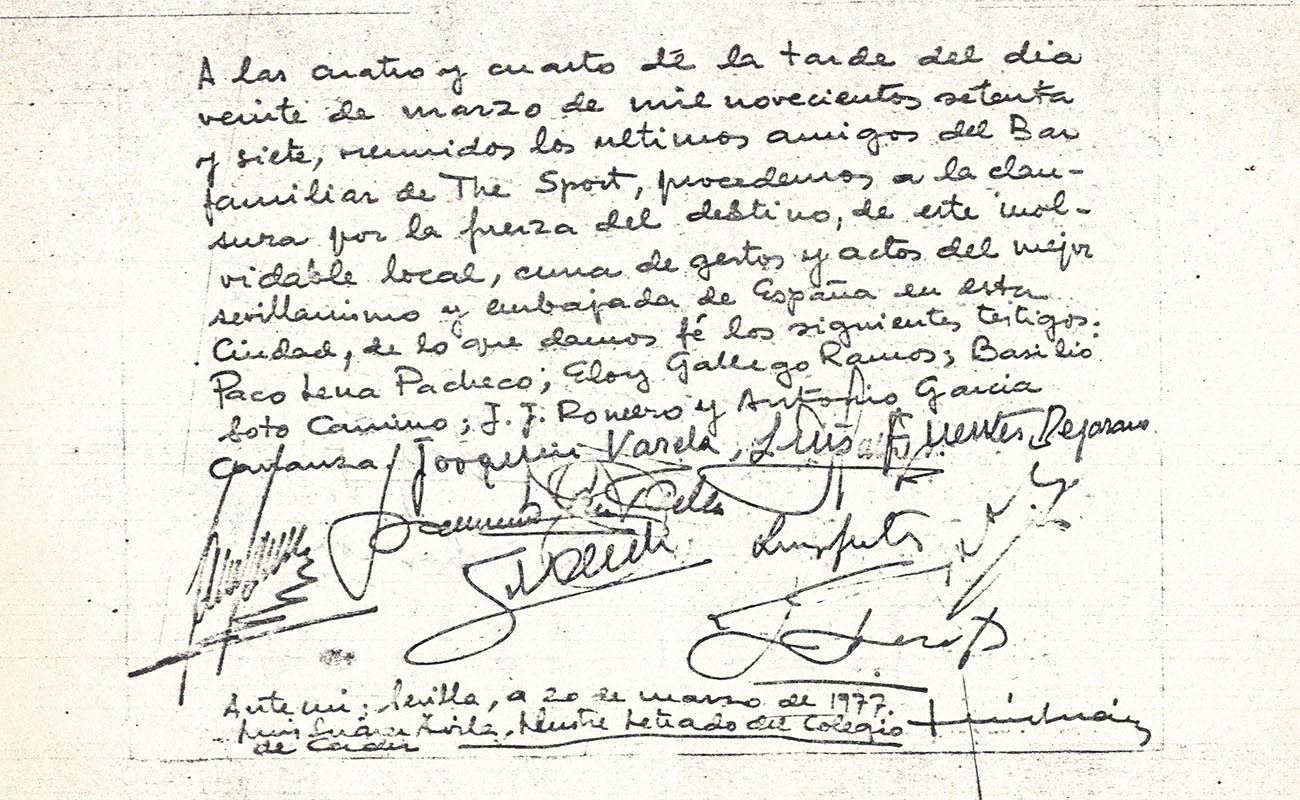 A las cuatro y cuarto dé la tarde del dia
veinte de marzo de mil novecientos setenta
y siete, reunidos los ultimos amigos del Bar
familiar de The Sport, procedemos a la clau-
sura por la fuerza del destino, de este inol-
vidable local, cuna de gestos y actos del mejor
sevillanismo y embajada de España en esta
Ciudad, de lo que damos fé los siguientes testigos:
Paco Lena Pacheco; Eloy Gallego Ramos; Basilio
Soto Camino; J. J. Romero y Antonio Garcia
Carranza, Joaquin Varela, Luis Fuentes Bejarano
Ante mi, Sevilla, a 20 de marzo de 1977.
Luis Suárez Ávila, Ilustre Letrado del Colegio
de Cadiz